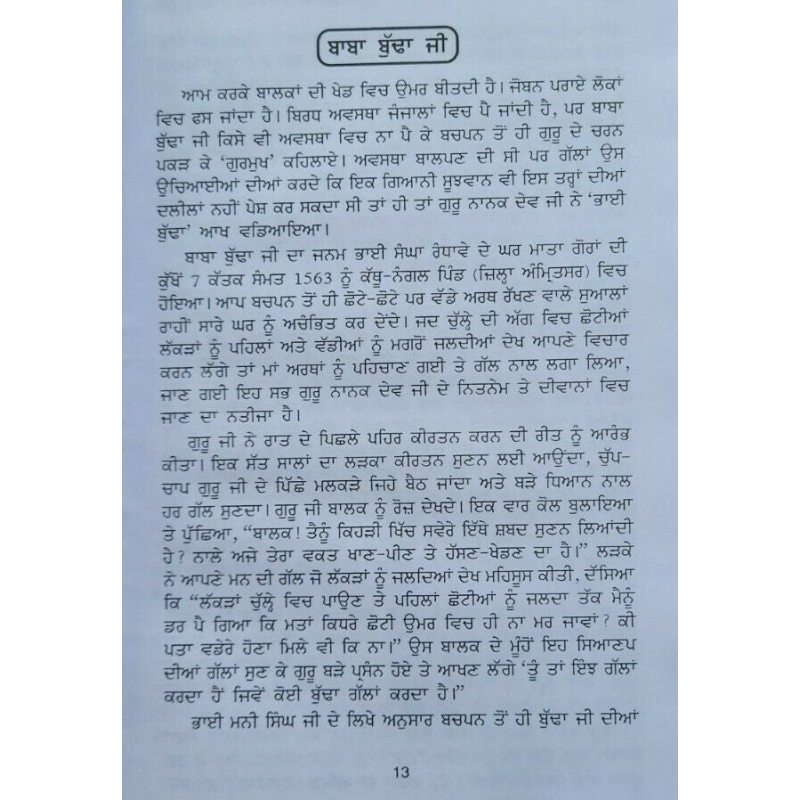 ਬਾਬਾ ਬੁੱਢਾ ਜੀ
ਆਮ ਕਰਕੇ ਬਾਲਕਾਂ ਦੀ ਖੇਡ ਵਿਚ ਉਮਰ ਬੀਤਦੀ ਹੈ। ਜੋਬਨ ਪਰਾਏ ਲੋਕਾਂ
ਵਿਚ ਫਸ ਜਾਂਦਾ ਹੈ। ਬਿਰਧ ਅਵਸਥਾ ਜੰਜਾਲਾਂ ਵਿਚ ਪੈ ਜਾਂਦੀ ਹੈ, ਪਰ ਬਾਬਾ
ਬੁੱਢਾ ਜੀ ਕਿਸੇ ਵੀ ਅਵਸਥਾ ਵਿਚ ਨਾ ਪੈ ਕੇ ਬਚਪਨ ਤੋਂ ਹੀ ਗੁਰੂ ਦੇ ਚਰਨ
ਪਕੜ ਕੇ ‘ਗੁਰਮੁਖ’ ਕਹਿਲਾਏ। ਅਵਸਥਾ ਬਾਲਪਣ ਦੀ ਸੀ ਪਰ ਗੱਲਾਂ ਉਸ
ਉਚਿਆਈਆਂ ਦੀਆਂ ਕਰਦੇ ਕਿ ਇਕ ਗਿਆਨੀ ਸੂਝਵਾਨ ਵੀ ਇਸ ਤਰ੍ਹਾਂ ਦੀਆਂ
ਦਲੀਲਾਂ ਨਹੀਂ ਪੇਸ਼ ਕਰ ਸਕਦਾ ਸੀ ਤਾਂ ਹੀ ਤਾਂ ਗੁਰੂ ਨਾਨਕ ਦੇਵ ਜੀ ਨੇ ‘ਭਾਈ
ਬੁੱਢਾ’ ਆਖ ਵਡਿਆਇਆ।
ਬਾਬਾ ਬੁੱਢਾ ਜੀ ਦਾ ਜਨਮ ਭਾਈ ਸੰਘਾ ਰੰਧਾਵੇ ਦੇ ਘਰ ਮਾਤਾ ਗੋਰਾਂ ਦੀ
ਕੁੱਖੋਂ 7 ਕੱਤਕ ਸੰਮਤ 1563 ਨੂੰ ਕੱਥੂ-ਨੰਗਲ ਪਿੰਡ (ਜ਼ਿਲ੍ਹਾ ਅੰਮ੍ਰਿਤਸਰ) ਵਿਚ
ਹੋਇਆ। ਆਪ ਬਚਪਨ ਤੋਂ ਹੀ ਛੋਟੇ-ਛੋਟੇ ਪਰ ਵੱਡੇ ਅਰਥ ਰੱਖਣ ਵਾਲੇ ਸੁਆਲਾਂ
ਰਾਹੀਂ ਸਾਰੇ ਘਰ ਨੂੰ ਅਚੰਭਿਤ ਕਰ ਦੇਂਦੇ। ਜਦ ਚੁੱਲ੍ਹੇ ਦੀ ਅੱਗ ਵਿਚ ਛੋਟੀਆਂ
ਲੱਕੜਾਂ ਨੂੰ ਪਹਿਲਾਂ ਅਤੇ ਵੱਡੀਆਂ ਨੂੰ ਮਗਰੋਂ ਜਲਦੀਆਂ ਦੇਖ ਆਪਣੇ ਵਿਚਾਰ
ਕਰਨ ਲੱਗੇ ਤਾਂ ਮਾਂ ਅਰਥਾਂ ਨੂੰ ਪਹਿਚਾਣ ਗਈ ਤੇ ਗੱਲ ਨਾਲ ਲਗਾ ਲਿਆ,
ਜਾਣ ਗਈ ਇਹ ਸਭ ਗੁਰੂ ਨਾਨਕ ਦੇਵ ਜੀ ਦੇ ਨਿਤਨੇਮ ਤੇ ਦੀਵਾਨਾਂ ਵਿਚ
ਜਾਣ ਦਾ ਨਤੀਜਾ ਹੈ।
ਗੁਰੂ ਜੀ ਨੇ ਰਾਤ ਦੇ ਪਿਛਲੇ ਪਹਿਰ ਕੀਰਤਨ ਕਰਨ ਦੀ ਰੀਤ ਨੂੰ ਆਰੰਭ
ਕੀਤਾ। ਇਕ ਸੱਤ ਸਾਲਾਂ ਦਾ ਲੜਕਾ ਕੀਰਤਨ ਸੁਣਨ ਲਈ ਆਉਂਦਾ, ਚੁੱਪ-
ਚਾਪ ਗੁਰੂ ਜੀ ਦੇ ਪਿੱਛੇ ਮਲਕੜੇ ਜਿਹੇ ਬੈਠ ਜਾਂਦਾ ਅਤੇ ਬੜੇ ਧਿਆਨ ਨਾਲ
ਹਰ ਗੱਲ ਸੁਣਦਾ। ਗੁਰੂ ਜੀ ਬਾਲਕ ਨੂੰ ਰੋਜ਼ ਦੇਖਦੇ। ਇਕ ਵਾਰ ਕੋਲ ਬੁਲਾਇਆ
ਤੇ ਪੁੱਛਿਆ, “ਬਾਲਕ! ਤੈਨੂੰ ਕਿਹੜੀ ਖਿੱਚ ਸਵੇਰੇ ਇੱਥੇ ਸ਼ਬਦ ਸੁਣਨ ਲਿਆਂਦੀ
ਹੈ? ਨਾਲੇ ਅਜੇ ਤੇਰਾ ਵਕਤ ਖਾਣ-ਪੀਣ ਤੇ ਹੱਸਣ-ਖੇਡਣ ਦਾ ਹੈ।” ਲੜਕੇ
ਨੇ ਆਪਣੇ ਮਨ ਦੀ ਗੱਲ ਜੋ ਲੱਕੜਾਂ ਨੂੰ ਜਲਦਿਆਂ ਦੇਖ ਮਹਿਸੂਸ ਕੀਤੀ, ਦੱਸਿਆ
ਕਿ “ਲੱਕੜਾਂ ਚੁੱਲ੍ਹੇ ਵਿਚ ਪਾਉਣ ਤੇ ਪਹਿਲਾਂ ਛੋਟੀਆਂ ਨੂੰ ਜਲਦਾ ਤੱਕ ਮੈਨੂੰ
ਡਰ ਪੈ ਗਿਆ ਕਿ ਮਤਾਂ ਕਿਧਰੇ ਛੋਟੀ ਉਮਰ ਵਿਚ ਹੀ ਨਾ ਮਰ ਜਾਵਾਂ? ਕੀ
ਪਤਾ ਵਡੇਰੇ ਹੋਣਾ ਮਿਲੇ ਵੀ ਕਿ ਨਾ।” ਉਸ ਬਾਲਕ ਦੇ ਮੂੰਹੋਂ ਇਹ ਸਿਆਣਪ
ਦੀਆਂ ਗੱਲਾਂ ਸੁਣ ਕੇ ਗੁਰੂ ਬੜੇ ਪ੍ਰਸੰਨ ਹੋਏ ਤੇ ਆਖਣ ਲੱਗੇ ‘ਤੂੰ ਤਾਂ ਇੰਝ ਗੱਲਾਂ
ਕਰਦਾ ਹੈਂ ਜਿਵੇਂ ਕੋਈ ਬੁੱਢਾ ਗੱਲਾਂ ਕਰਦਾ ਹੈ।”
ਭਾਈ ਮਨੀ ਸਿੰਘ ਜੀ ਦੇ ਲਿਖੇ ਅਨੁਸਾਰ ਬਚਪਨ ਤੋਂ ਹੀ ਬੁੱਢਾ ਜੀ ਦੀਆਂ
13